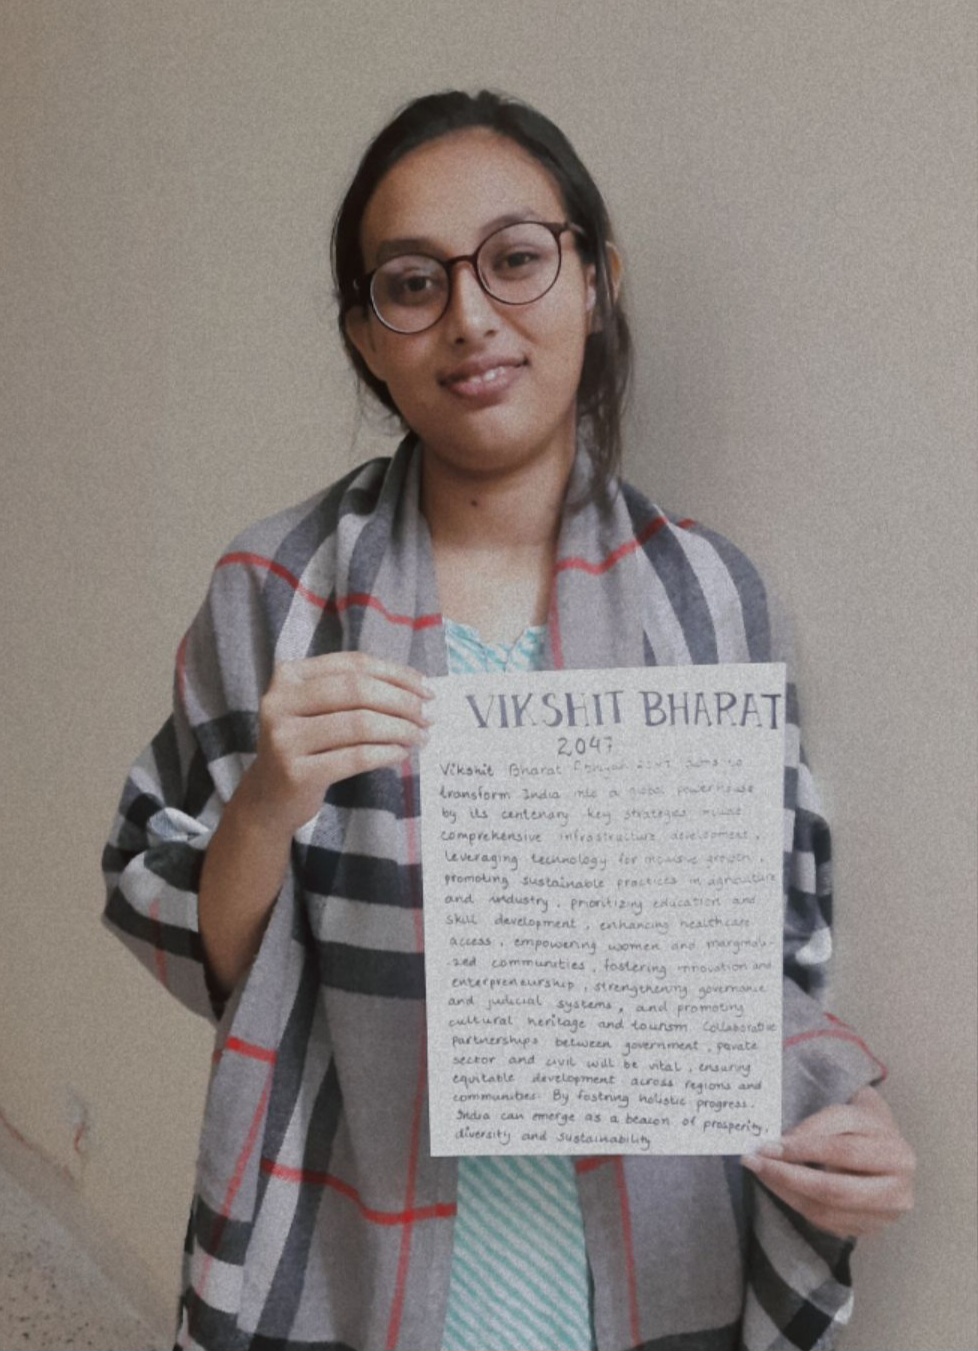 VIKSHIT BHARAT
2047
Vikshit Bharat Abhiyan 2047 aims to
transform India into a global powerhouse
by its centenary key strategies
comprehensive infrastructure development,
leveraging technology for inclusive growth,
promoting sustainable practices in agriculture
and industry, prioritizing education and
skill development, enhancing healthcare
access, empowering women and marginali-
-zed communities, fostering innovation and
enterpreneurship, strengthening governance
and judicial systems, and promoting
cultural heritage and tourism Collaborative
partnerships between government, private
sector and civil will be vital, ensuring
equitable development across regions and
communities. By fostring holistic progress,
India can emerge as a beacon of prosperity,
diversity and sustainability